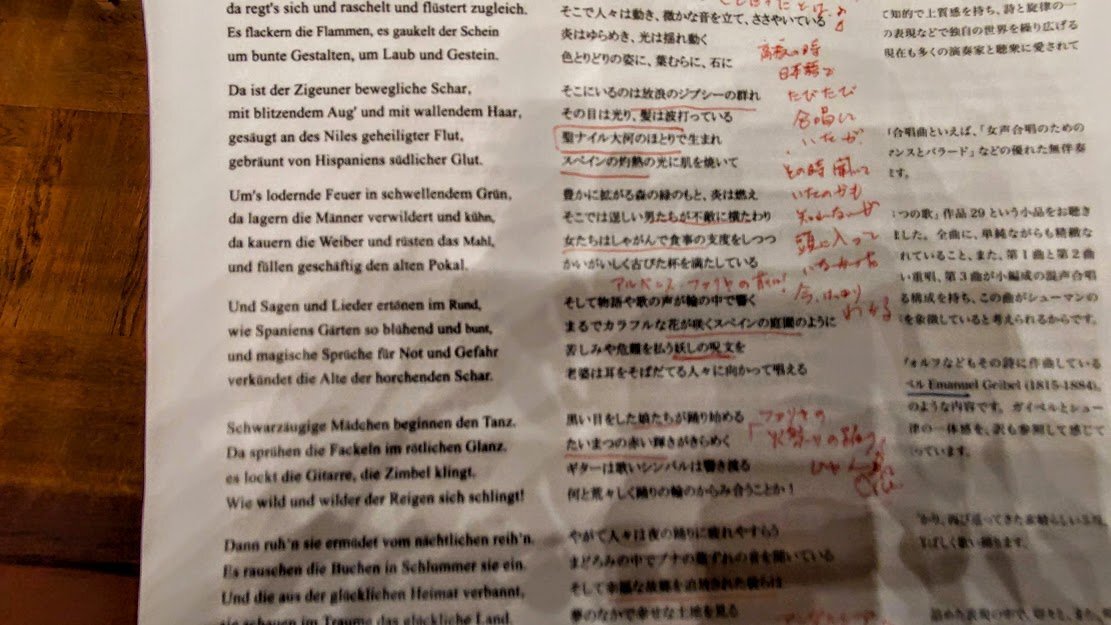 da regt's sich und raschelt und flüstert zugleich.
Es flackern die Flammen, es gaukelt der Schein
um bunte Gestalten, um Laub und Gestein.
Da ist der Zigeuner bewegliche Schar,
mit blitzendem Aug' und mit wallendem Haar,
gesäugt an des Niles geheiligter Flut,
gebräunt von Hispaniens südlicher Glut.
Um's lodernde Feuer in schwellendem Grün,
da lagern die Männer verwildert und kühn,
da kauern die Weiber und rüsten das Mahl,
und füllen geschäftig den alten Pokal.
Und Sagen und Lieder ertönen im Rund,
wie Spaniens Gärten so blühend und bunt,
und magische Sprüche für Not und Gefahr
verkündet die Alte der horchenden Schar.
Schwarzäugige Mädchen beginnen den Tanz.
Da sprühen die Fackeln im rötlichen Glanz.
es lockt die Gitarre, die Zimbel klingt.
Wie wild und wilder der Reigen sich schlingt!
Dann ruh'n sie ermüdet vom nächtlichen reih'n.
Es rauschen die Buchen in Schlummer sie ein.
Und die aus der glücklichen Heimat verbannt,
sie schauen im Traume das glückliche Land.
そこで人々は動き、微かな音を立て、ささやいている
炎はゆらめき、光は揺れ動く
色とりどりの姿に、葉むらに、石に
そこにいるのは放浪のジプシーの群れ
その目は光り、髪は波打っている
聖ナイル大河のほとりで生まれ
スペインの灼熱の光に肌を焼いて
豊かに拡がる森の緑のもと、炎は燃え
そこでは逞しい男たちが不敵に横たわり
女たちはしゃがんで食事の支度をしつつ
かいがいしく古びた杯を満たしている
そして物語や歌の声が輪の中で響く
まるでカラフルな花が咲くスペインの庭園のように
苦しみや危難を払う妖しの呪文を
老婆は耳をそばだてる人々に向かって唱える
黒い目をした娘たちが踊り始める
たいまつの赤い輝きがきらめく
ギターは歌いシンバルは響き渡る
何と荒々しく踊りの輪のからみ合うことか！
やがて人々は夜の踊りに疲れやすらう
まどろみの中でブナの葉ずれの音を聞いている
そして幸福な故郷を追放された彼らは
夢のなかで幸せな土地を見る
高校の時
日本語で
たびたび
合唱して
いたが、
その時聞いて
いたのかも
知れないが
頭に入って
いなかった
今、はっきり
わかる
ファリャの
て知的で上質感を持ち、詩と旋律の一
の表現などで独自の世界を繰り広げる
現在も多くの演奏家と聴衆に愛されて
「合唱曲といえば、「女声合唱のための
マンスとバラード」などの優れた無伴奏
ます。
つの歌」作品 29 という小品をお聴き
ました。全曲に、単純ながらも精緻な
れていること、また、第 1 曲と第 2 曲
い重唱、第 3 曲が小編成の混声合唱
る構成を持ち、この曲がシューマンの
を象徴していると考えられるからです。
「オルフなどもその詩に作曲している
ベル Emanuel Geibel (1815-1884)。
のような内容です。ガイベルとシュー
律の一体感を、訳も参照して感じて
っています。